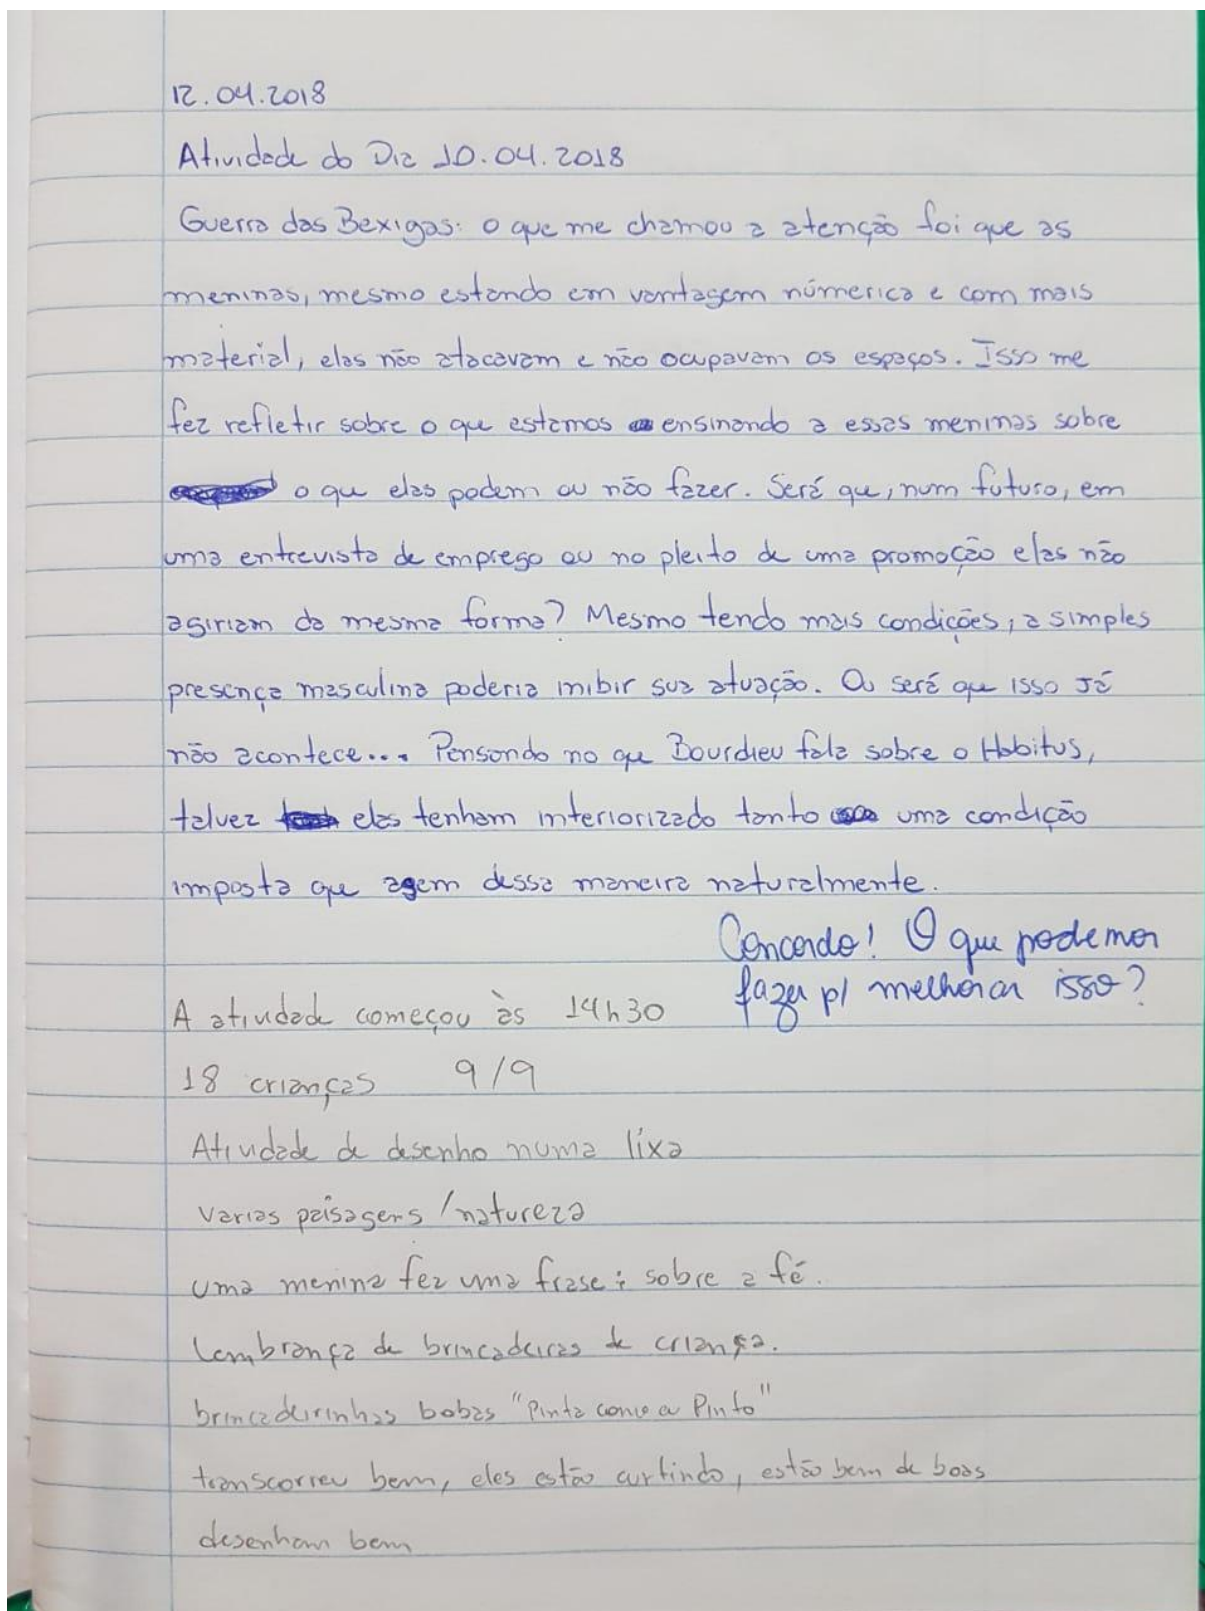 12.04.2018
Atividade do Dia 10.04.2018
Guerra das Bexigas: o que me chamou a atenção foi que as
meninas, mesmo estando em vantagem númerica e com mais
material, elas não atacavam e não ocupavam os espaços. Isso me
fez refletir sobre o que estamos ensinando a essas meninas sobre
o que elas podem ou não fazer. Será que, num futuro, em
uma entrevista de emprego ou no pleito de uma promoção elas não
agiriam da mesma forma? Mesmo tendo mais condições, a simples
presença masculina poderia inibir sua atuação. Ou será que isso já
não acontece... Pensando no que Bourdieu fala sobre o Habitus,
talvez elas tenham interiorizado tanto uma condição
imposta que agem dessa maneira naturalmente.
Concordo! O que podemos
fazer p/ melhorar isso?
A atividade começou às 14h30
18 crianças 9/9
Atividade de desenho numa lixa
varias paisagens / natureza
uma menina fez uma frase: sobre a fé.
Lembrança de brincadeiras de criança.
brincadeirinhas bobas "Pinta como eu Pinto"
transcorreu bem, eles estão curtindo, estão bem de boas
desenham bem